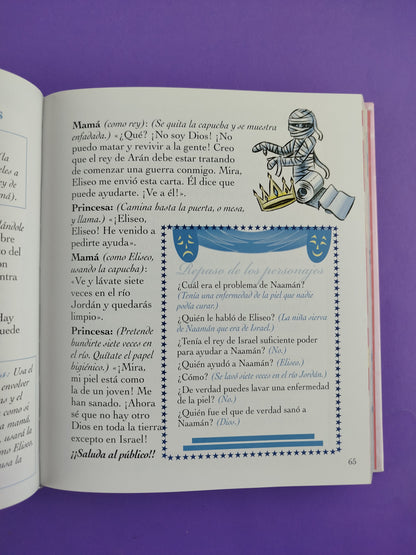 s
(la
eles a
rey de
má.)
lándole
obre
to del
ón
ontra
Hay
uede
s: Una el
envolver
os y el
como el
mamá,
usará la
o Eliseo,
usa la
Mamá (como rey): (Se quita la capucha y se muestra
enfadada.) «¿Qué? ¡No soy Dios! ¡No
puedo matar y revivir a la gente! Creo
que el rey de Arán debe estar tratando
de comenzar una guerra conmigo. Mira,
Eliseo me envió esta carta. Él dice que
puede ayudarte. ¡Ve a él!».
Princesa: (Camina hasta la puerta, o mesa,
y llama.) «¡Eliseo,
Eliseo! He venido a
pedirte ayuda».
Mamá (como Eliseo,
usando la capucha):
«Ve y lávate siete
veces en el río
Jordán y quedarás
limpio».
Princesa: (Pretende
hundirte siete veces en
el río. Quítate el papel
higiénico.) «¡Mira,
mi piel está como
la de un joven! Me
han sanado. ¡Ahora
sé que no hay otro
Dios en toda la tierra
excepto en Israel!
¡¡Saluda al público!!
Repaso de los personajes
¿Cuál era el problema de Naamán?
(Tenía una enfermedad de la piel que nadie
podía curar.)
¿Quién le habló de Eliseo? (La niña sierva
de Naamán que era de Israel.)
¿Tenía el rey de Israel suficiente poder
para ayudar a Naamán? (No.)
¿Quién ayudó a Naamán? (Eliseo.)
¿Cómo? (Se lavó siete veces en el río Jordán.)
¿De verdad puedes lavar una enfermedad
de la piel? (No.)
¿Quién fue el que de verdad sanó a
Naamán? (Dios.)
65